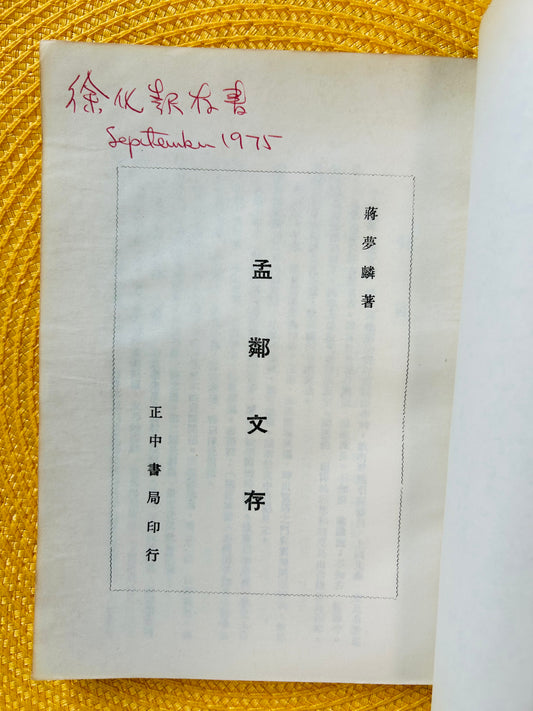 徐
書
September 1975
蔣夢麟著
孟鄰文存
正中書局印行